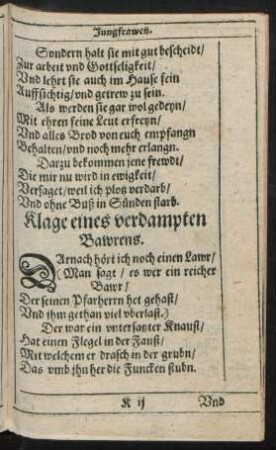 Jungfrawen.
Sondern halt sie mit gut bescheidt/
Zur arbeit vnd Gottseligkeit/
Vnd lehrt sie auch im Hause sein
Auffsichtig/vnd getrew zu sein.
Als werden sie gar wol gedeyn/
Mit ehren seine Leut erfreyn/
Vnd alles Brod von euch empfangn
Behalten/vnd noch mehr erlangn.
Darzu bekommen jene frewdt/
Die mir nu wird in ewigkeit/
Versaget/weil ich plotz verdarb/
Vnd ohne Buß in Sünden starb.
Klage eines verdampten
Bawrens.
DArnach hört ich noch einen Lawr/
(Man sagt / es wer ein reicher
Bawr/
Der seinen Pfarherrn het gehast/
Vnd ihm gethan viel vberlast.)
Der war ein vntersatzter Knaust/
Hat einen Flegel in der Faust/
Mit welchem er drasch in der grubn/
Das vmb jhn her die Funcken stubn.
K ij
Vnd